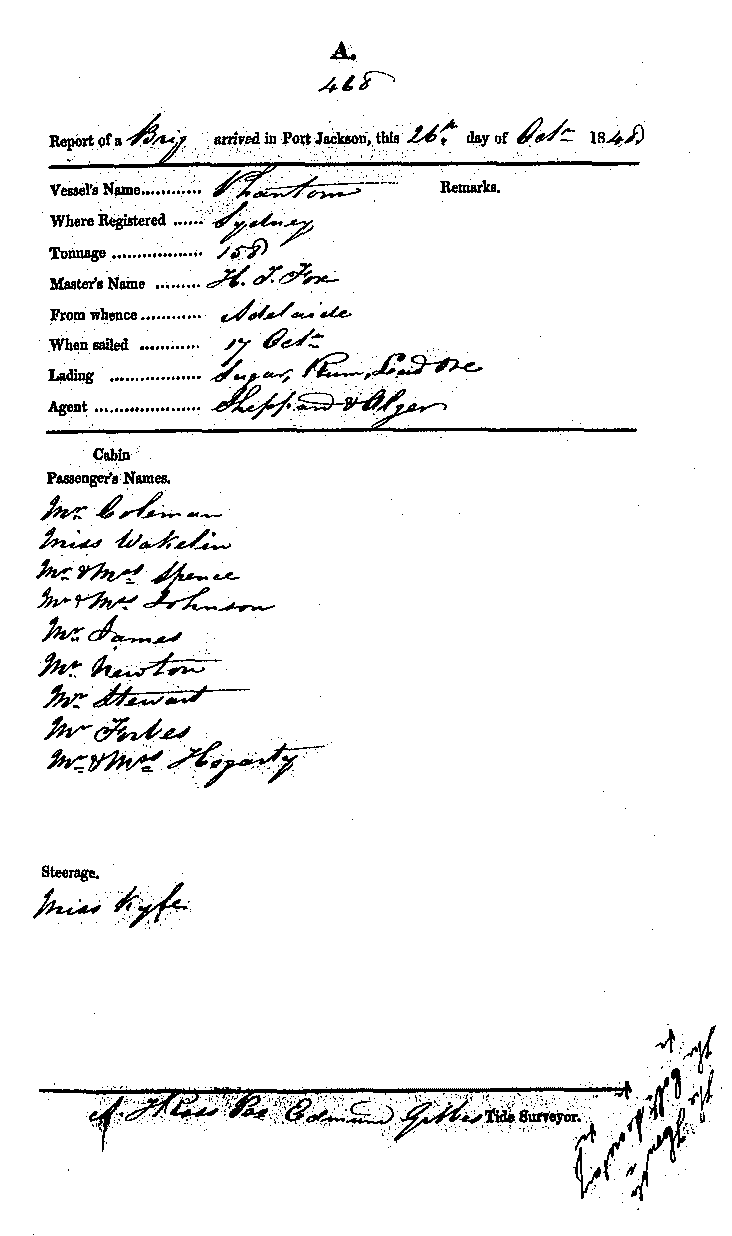 A.
468
Report of a Brig arrived in Port Jackson, this 26th day of Octr 1848
Vessel's Name............ Phantom Remarks.
Where Registered ...... Sydney
Tonnage .................. 158
Master's Name ......... H. T. Fox
From whence............ Adelaide
When sailed ............ 17 Octr
Lading .................. Sugar, Rum, Lead Ore
Agent ..................... Sheppard & Alger
Cabin
Passenger's Names.
Mr. Coleman
Miss Wakelin
Mr & Mrs Spence
Mr & Mrs Johnson
Mr. James
Mr. Newton
Mr. Stewart
Mr Forbes
Mr & Mrs Hogarty
Steerage.
Miss Kyfe
Edmund Gibbes Tide Surveyor.